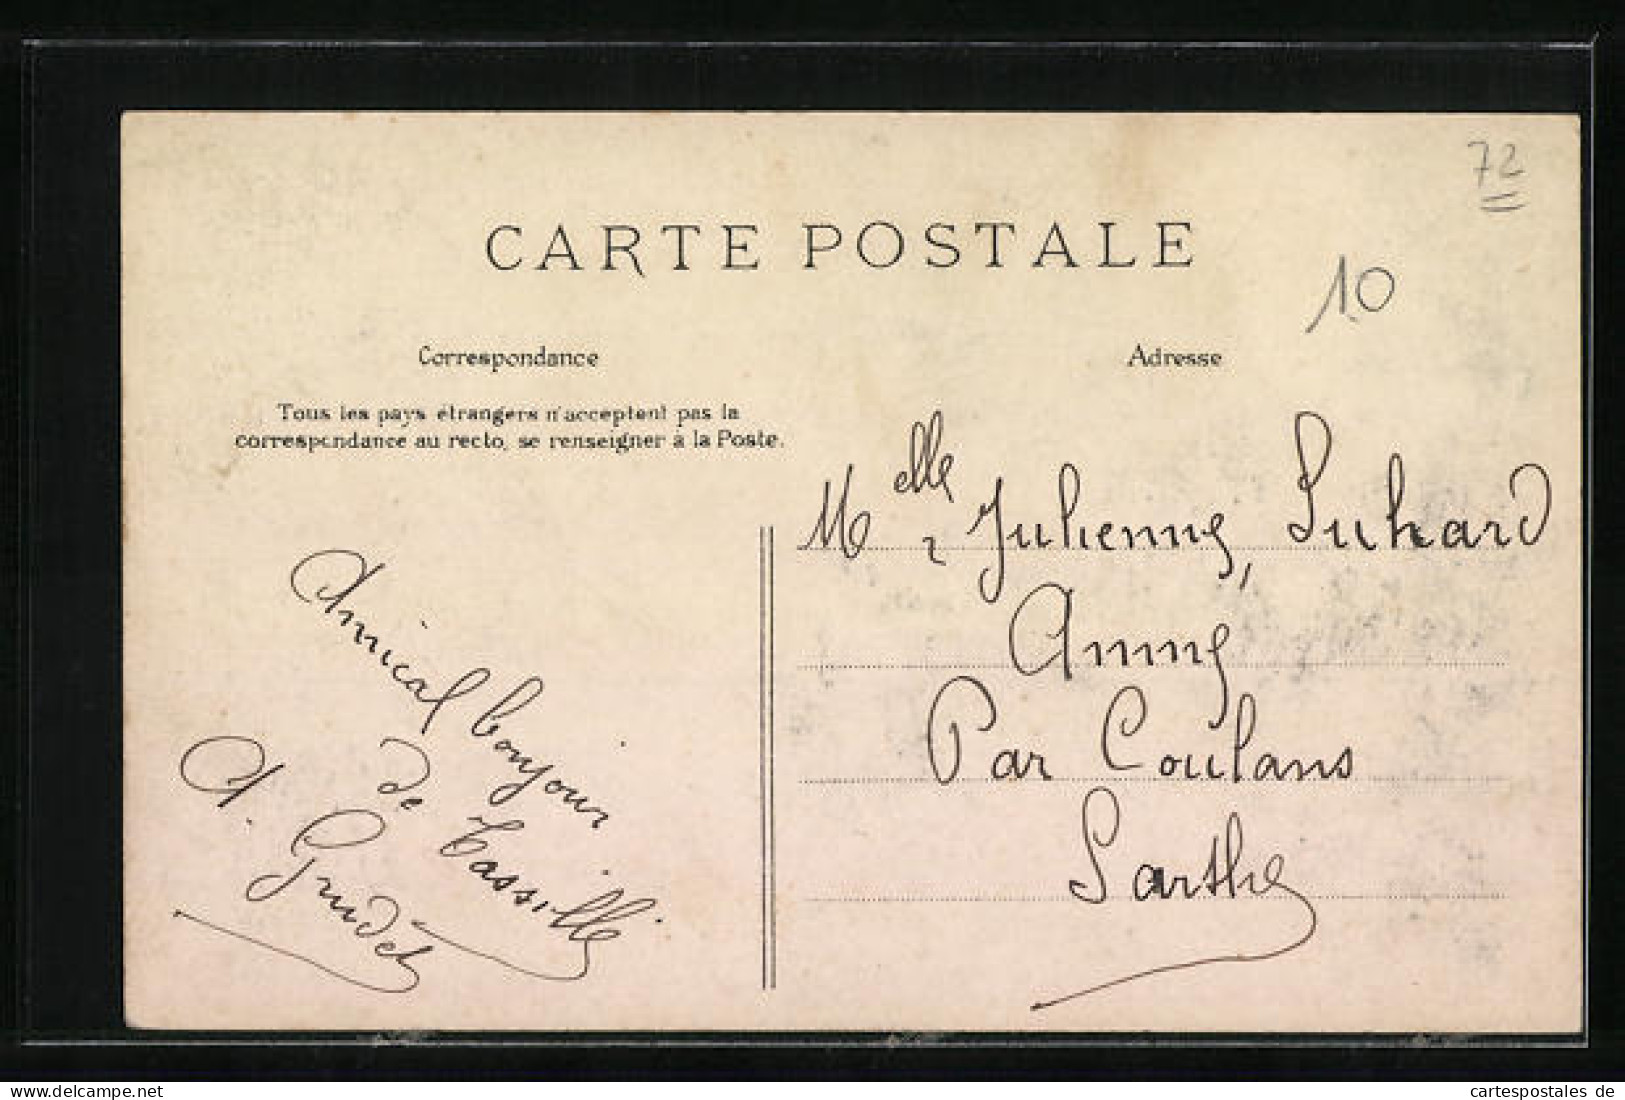 72
CARTE POSTALE
10
Correspondance
Tous les pays étrangers n'acceptent pas la
correspondance au recto, se renseigner à la Poste.
Amical bonjour
de Tassillé
A. Grudet
Adresse
Melle Julienne Suhard
Amné
Par Coulans
Sarthe
cartespostales de